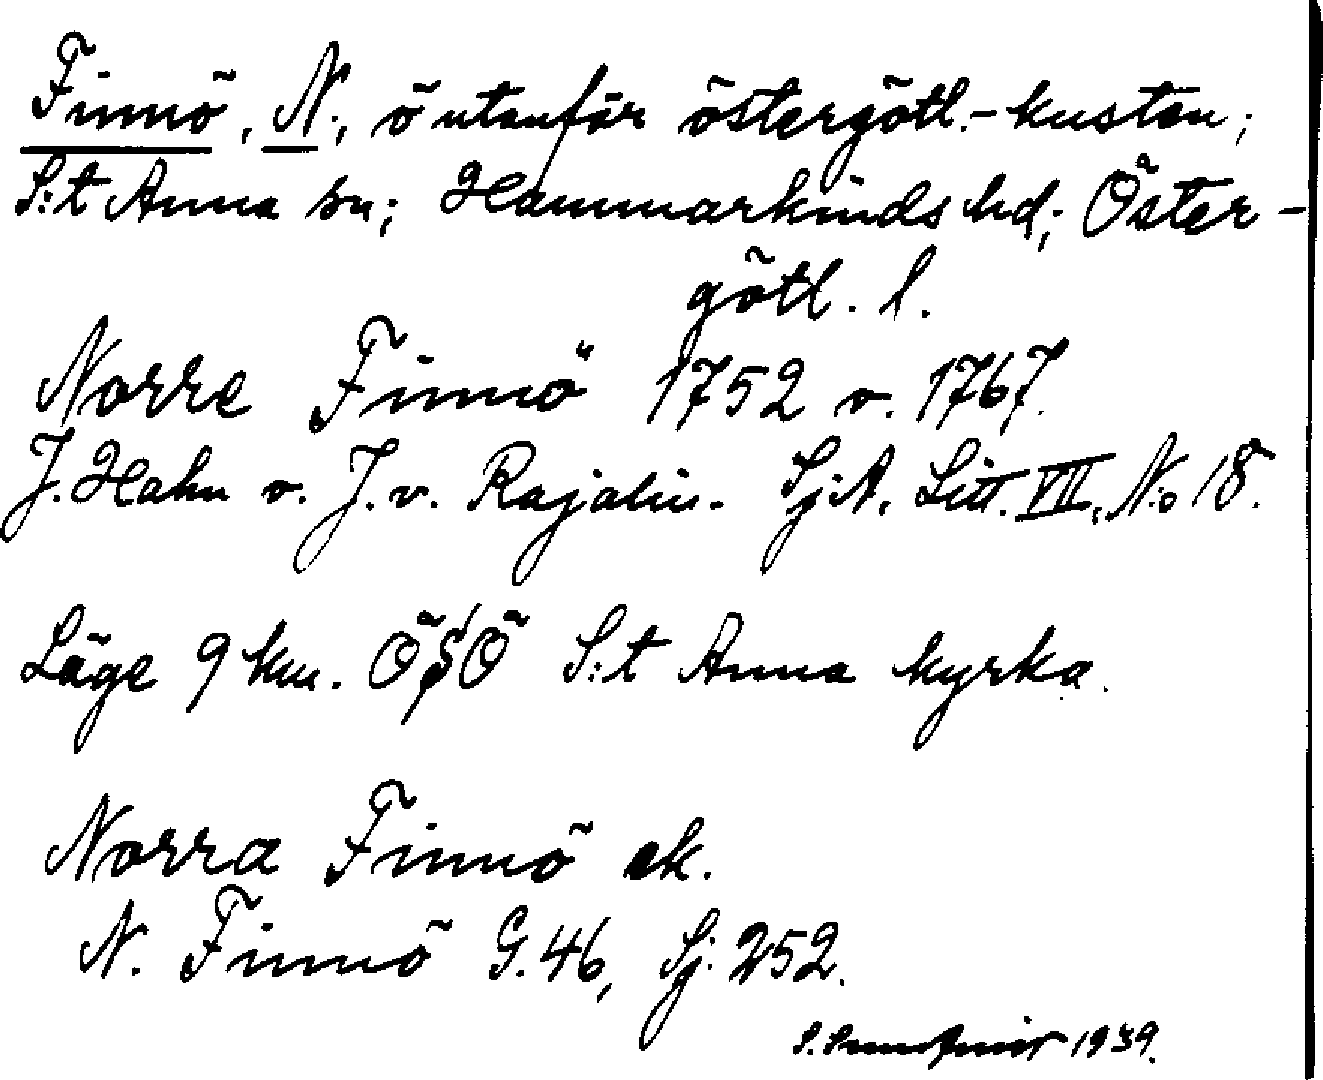 Finnö, N., ö utanför östergötl.-kusten;
S:t Anna sn; Hammarkinds hd; Öster-
götl. l.
Norre Finnö 1752 o. 1767.
J. Hahn o. J. v. Rajalin. Sj.A. Litt. VII, N:o 18.
Läge 9 km. ÖSÖ S:t Anna kyrka.
Norra Finnö ek.
N. Finnö G. 46, Sj. 252.
1939.